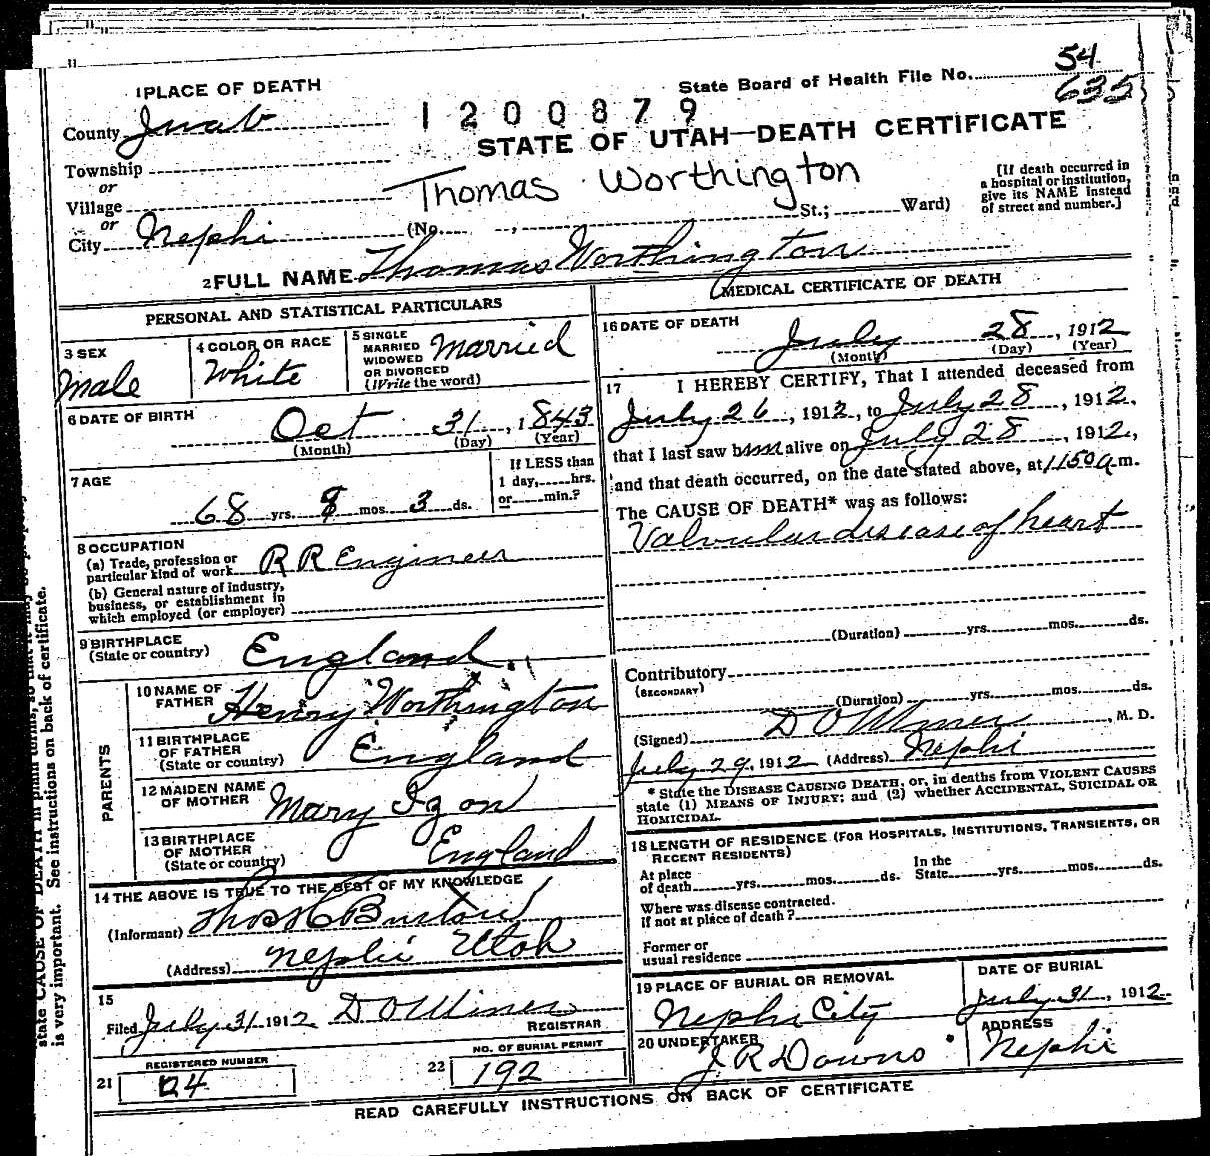 54
State Board of Health File No. 635
1 PLACE OF DEATH
1200879
County Juab
STATE OF UTAH—DEATH CERTIFICATE
Township
or
Village
Thomas Worthington
[If death occurred in
a hospital or institution,
give its NAME instead
of street and number.]
or
City Nephi (No. , St.; Ward)
2 FULL NAME Thomas Worthington
PERSONAL AND STATISTICAL PARTICULARS
3 SEX
Male
4 COLOR OR RACE
White
5 SINGLE
MARRIED
WIDOWED
OR DIVORCED
(Write the word)
Married
6 DATE OF BIRTH
Oct 31, 1843
(Month) (Day) (Year)
7 AGE
68 yrs. 8 mos. 3 ds.
If LESS than
1 day, hrs.
or min.?
8 OCCUPATION
(a) Trade, profession or
particular kind of work RR Engineer
(b) General nature of industry,
business, or establishment in
which employed (or employer)
9 BIRTHPLACE
(State or country) England
PARENTS
10 NAME OF
FATHER Henry Worthington
11 BIRTHPLACE
OF FATHER
(State or country) England
12 MAIDEN NAME
OF MOTHER Mary Izon
13 BIRTHPLACE
OF MOTHER
(State or country) England
14 THE ABOVE IS TRUE TO THE BEST OF MY KNOWLEDGE
(Informant) Thos H C
(Address) Nephi Utah
15
Filed July 31 1912 D O Miner
REGISTRAR
REGISTERED NUMBER
21 24
NO. OF BURIAL PERMIT
22 192
MEDICAL CERTIFICATE OF DEATH
16 DATE OF DEATH
July 28, 1912
(Month) (Day) (Year)
17 I HEREBY CERTIFY, That I attended deceased from
July 26, 1912, to July 28, 1912,
that I last saw him alive on July 28, 1912,
and that death occurred, on the date stated above, at 1150 a m.
The CAUSE OF DEATH* was as follows:
Valvular disease of heart
(Duration) yrs. mos. ds.
Contributory
(SECONDARY)
(Duration) yrs. mos. ds.
(Signed) D O Miner, M. D.
July 29, 1912 (Address) Nephi
* State the DISEASE CAUSING DEATH, or, in deaths from VIOLENT CAUSES
state (1) MEANS OF INJURY; and (2) whether ACCIDENTAL, SUICIDAL OR
HOMICIDAL.
18 LENGTH OF RESIDENCE (FOR HOSPITALS, INSTITUTIONS, TRANSIENTS, OR
RECENT RESIDENTS)
At place
of death yrs. mos. ds.
In the
State yrs. mos. ds.
Where was disease contracted.
if not at place of death?
Former or
usual residence
19 PLACE OF BURIAL OR REMOVAL
Nephi City
DATE OF BURIAL
July 31, 1912
20 UNDERTAKER
J R Downs
ADDRESS
Nephi
READ CAREFULLY INSTRUCTIONS ON BACK OF CERTIFICATE
state CAUSE OF DEATH in plain terms, so that it may be
is very important. See instructions on back of certificate.